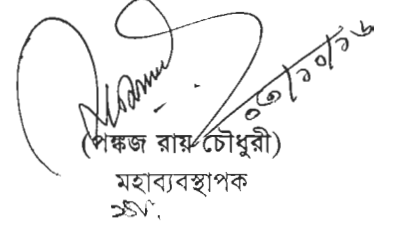 ০৩/১০/১৬
(পঙ্কজ রায় চৌধুরী)
মহাব্যবস্থাপক